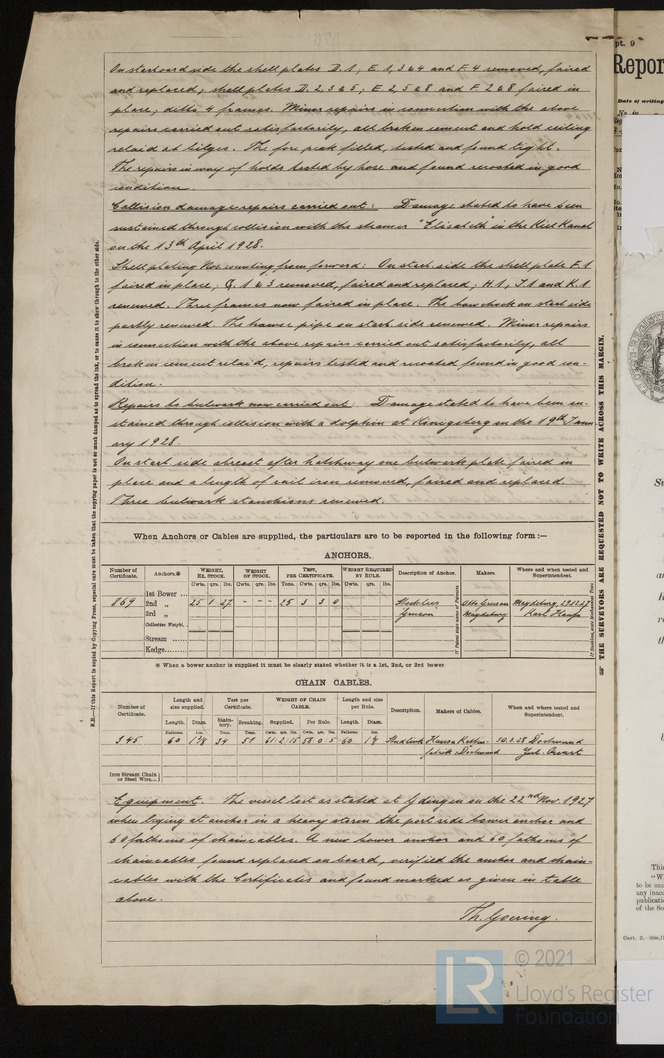 On starboard side the shell plates D.1, E.1, 3 & 4 and F.4 removed, faired
and replaced; shell plates D.2, 3 & 5, E.2, 5 & 8 and F.2 & 8 faired in
place; ditto 4 frames. Minor repairs in connection with the above
repairs carried out satisfactorily, all broken cement and hold ceiling
relaid at bilges. The fore peak filled, tested and found tight.
The repairs in way of holds tested by hose and found recoated in good
condition.
Collision damage repairs carried out: Damage stated to have been
sustained through collision with the steamer "Elisabeth" in the Kiel Kanal
on the 13th April 1928.
Shell plating Nos. counting from forward: On starb. side the shell plate F.1
faired in place; G.1 & 3 removed, faired and replaced; H.1, J.1 and K.1
renewed. Three frames now faired in place. The bow chock on starb. side
partly renewed. The hawse pipe on starb. side renewed. Minor repairs
in connection with the above repairs carried out satisfactorily, all
broken cement relaid, repairs tested and recoated found in good con-
dition.
Repairs to bulwark now carried out: Damage stated to have been su-
stained through collision with a dolphin at Königsberg on the 19th Janu-
ary 1928.
On starb. side abreast after hatchway one bulwark plate faired in
place and a length of rail iron removed, faired and replaced.
Three bulwark stanchions renewed.
When Anchors or Cables are supplied, the particulars are to be reported in the following form :—
ANCHORS.
Number of Certificate. Anchors.* WEIGHT, EX. STOCK. WEIGHT OF STOCK. TEST, PER CERTIFICATE. WEIGHT REQUIRED BY RULE. Description of Anchor. Makers. Where and when tested and Superintendent.
Cwts. qrs. lbs. Cwts. qrs. lbs. Tons. Cwts. qrs. lbs. Cwts. qrs. lbs.
1st Bower ...
869 2nd „ 25 1 27 - - - 25 3 3 0 Stockless Otto Gruson Magdeburg, 29.12.27
3rd „ Gruson Magdeburg Karl
Collective Weight,
Stream ......
Kedge........
* When a bower anchor is supplied it must be clearly stated whether it is a 1st, 2nd, or 3rd bower
CHAIN CABLES.
Number of Certificate. Length and size supplied. Test per Certificate. WEIGHT OF CHAIN CABLE. Length and size per Rule. Description. Makers of Cables. When and where tested and Superintendent.
Length. Diam. Statutory. Breaking. Supplied. Per Rule. Length. Diam.
Fathoms. Ins. Tons. Tons. Cwts. qrs. lbs. Cwts. qrs. lbs. Fathoms. Ins.
345 60 34 51 61.2.15 58.0.5 60 Studlink 30.3.28 Dortmund
fabrik Dortmund
Iron Stream Chain or Steel Wire...
Equipment. The vessel lost as stated at Gdingen on the 22nd Nov. 1927
when laying at anchor in a heavy storm the port side bower anchor and
60 fathoms of chaincables. A new bower anchor and 60 fathoms of
chaincables found replaced on board, verified the anchor and chain-
cables with the Certificates and found marked as given in table
above.
Th. Goering.
N.B.—If this Report is copied by Copying Press, especial care must be taken that the copying paper is not so much damped as to spread the ink, or to cause it to show through to the other side.
THE SURVEYORS ARE REQUESTED NOT TO WRITE ACROSS THIS MARGIN.
pt. 9
Repor
Date of writing
This
"W
to be
any ina
publicatio
of the So
LR
© 2021
Lloyd's Register
Foundation